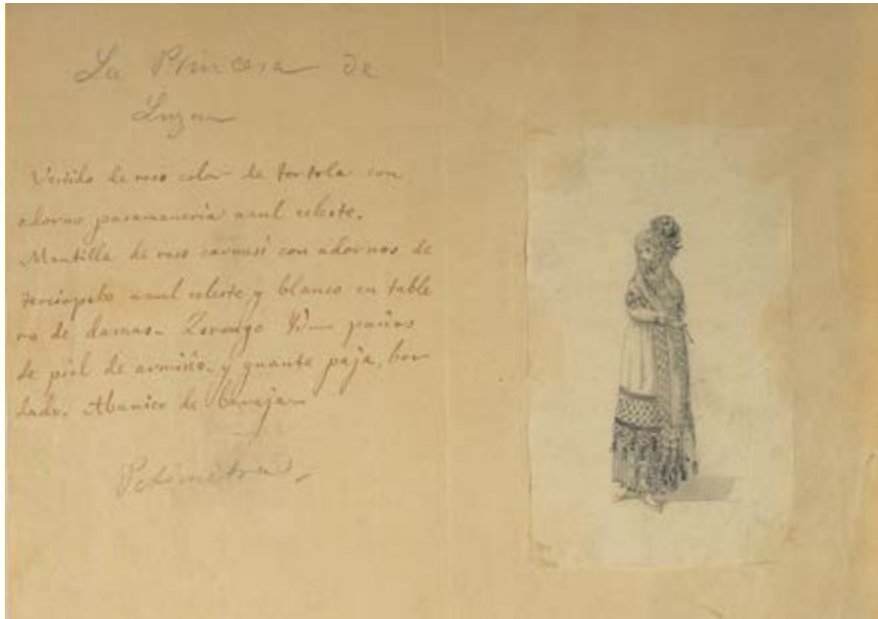 La Princesa de
Luzan
Vestido de raso color de tortola con
adorno pasamaneria azul celeste.
Mantilla de raso carmesi con adornos de
terciopelo azul celeste y blanco en table
ro de damas. Zorongo paños
de piel de armiño y guante paja, bor
dado. Abanico de baraja
Petimetra